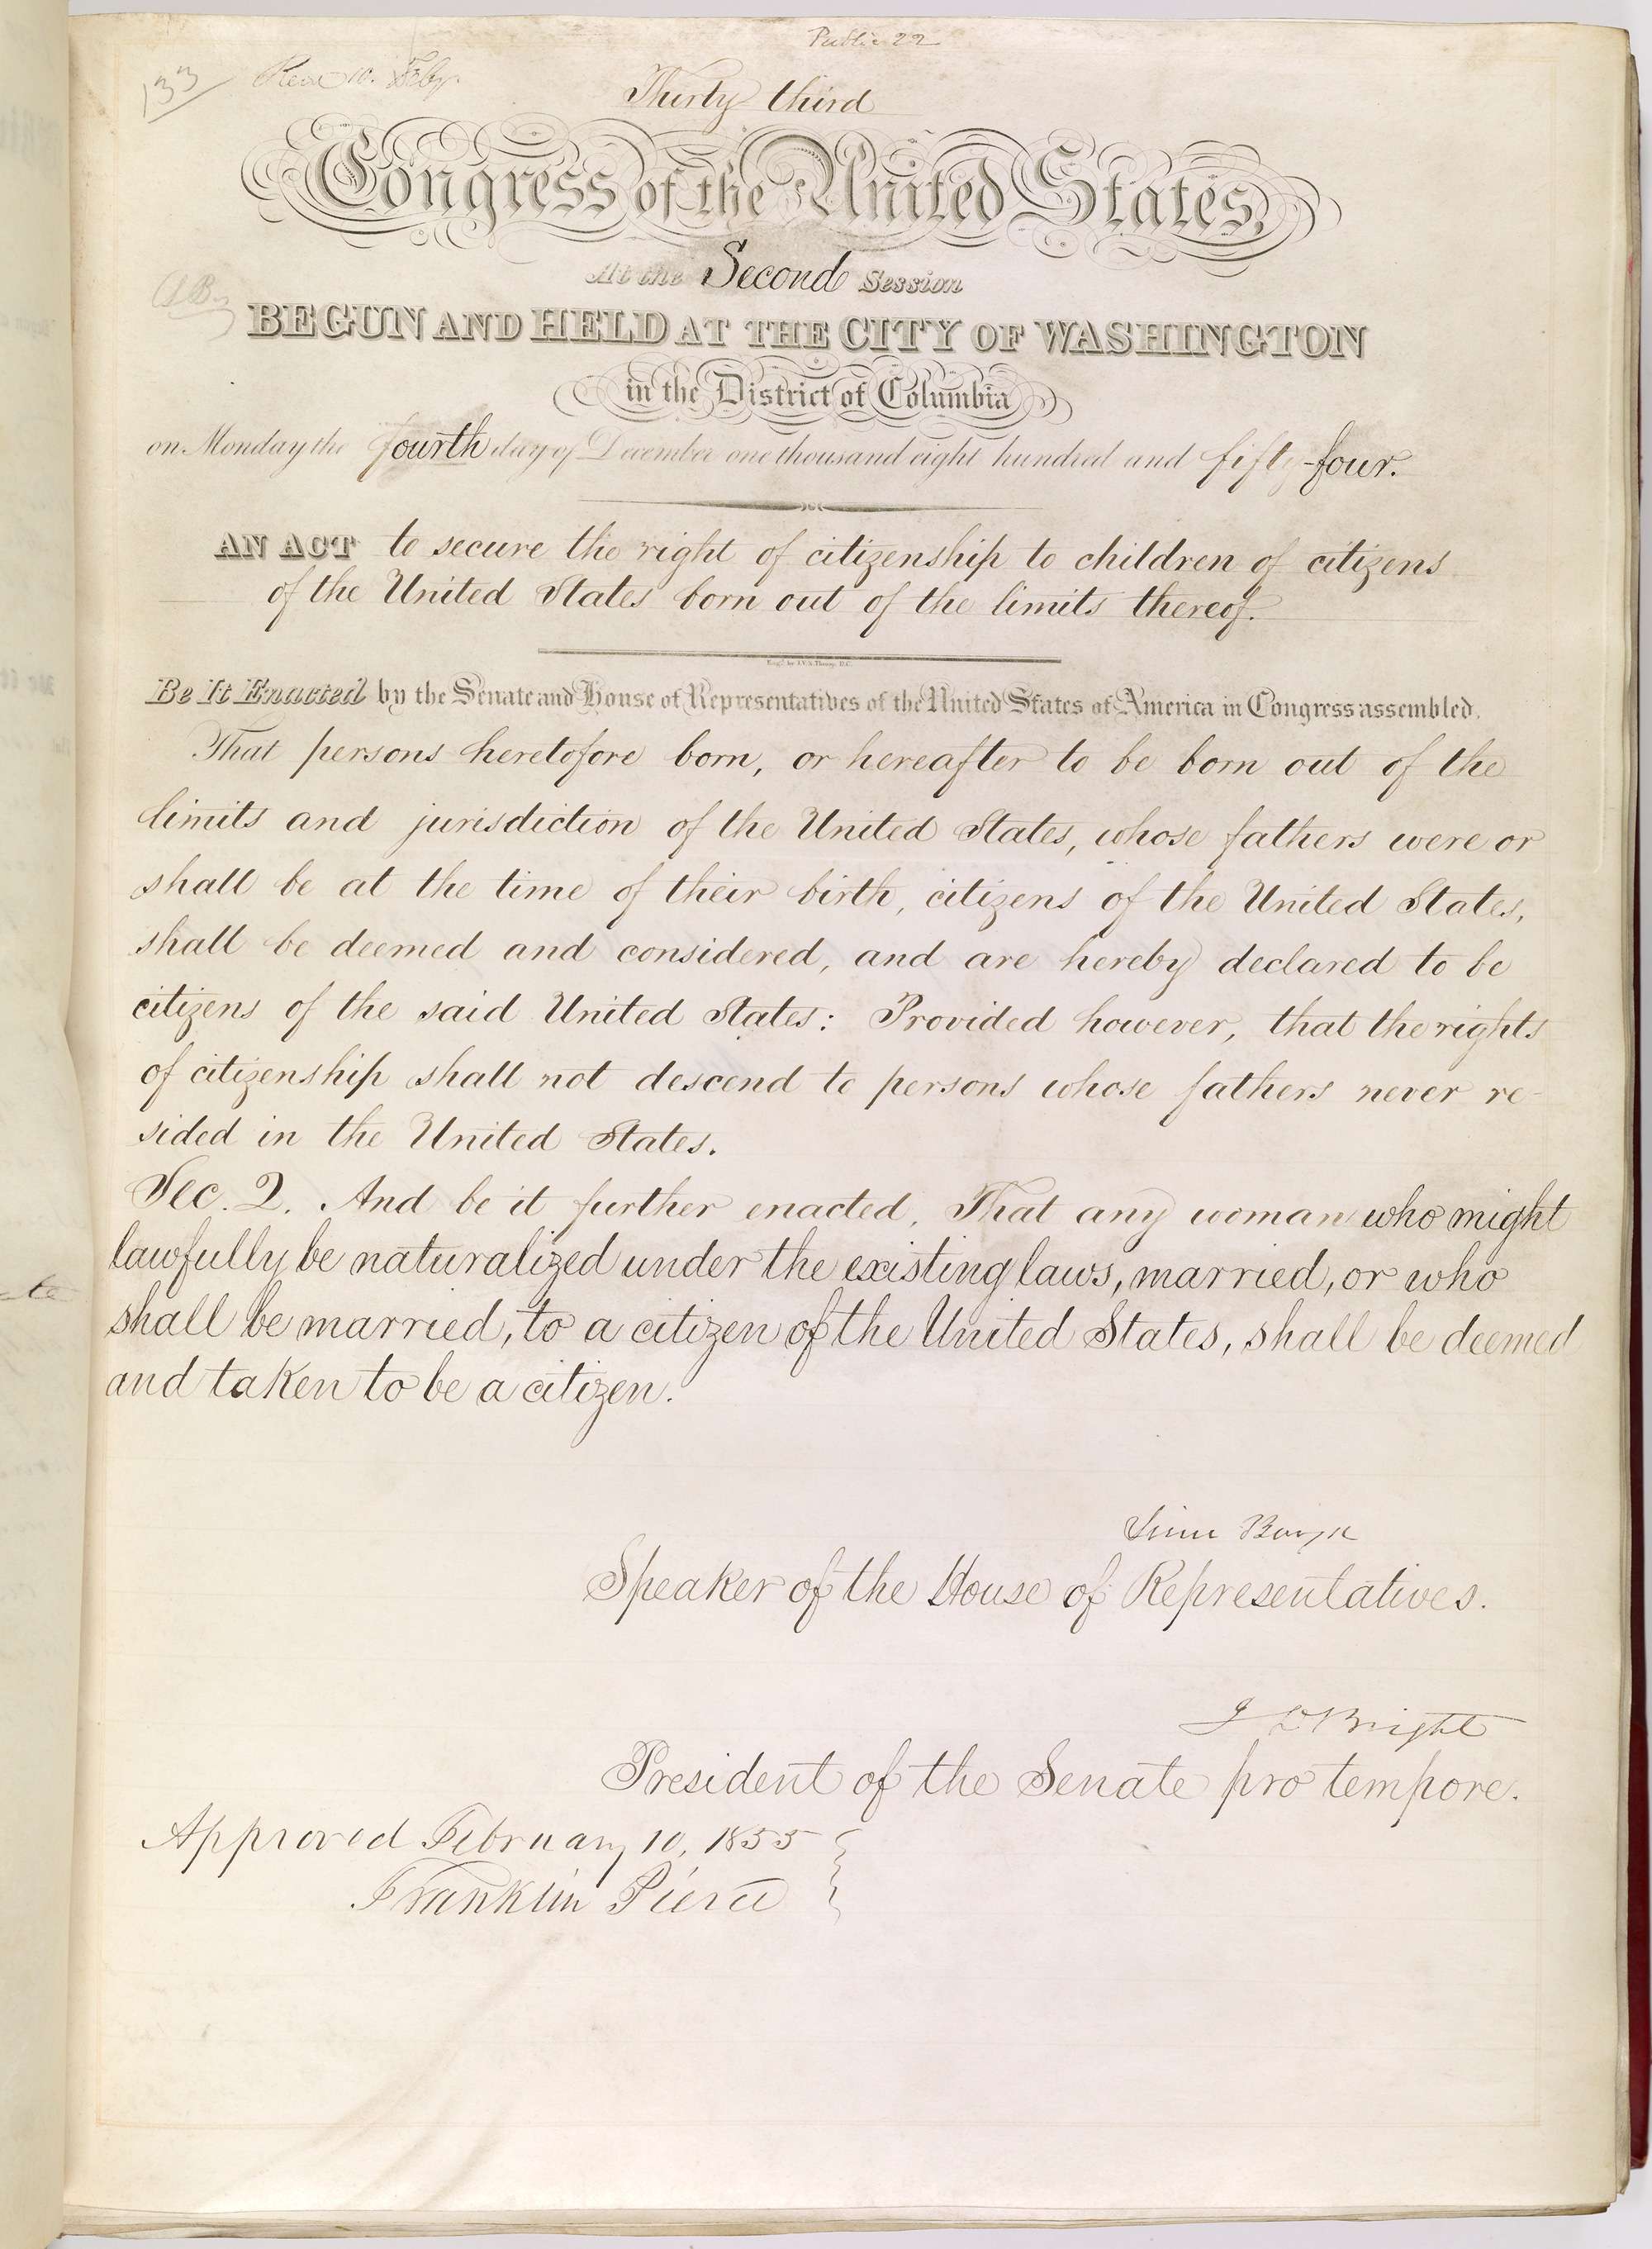 Public 22
133
Rec. 10. Feby.
Thirty third
Congress of the United States,
At the Second Session
BEGUN AND HELD AT THE CITY OF WASHINGTON
in the District of Columbia
on Monday the fourth day of December one thousand eight hundred and fifty-four.
AN ACT to secure the right of citizenship to children of citizens
of the United States born out of the limits thereof.
Be It Enacted by the Senate and House of Representatives of the United States of America in Congress assembled,
That persons heretofore born, or hereafter to be born out of the
limits and jurisdiction of the United States, whose fathers were or
shall be at the time of their birth, citizens of the United States,
shall be deemed and considered, and are hereby declared to be
citizens of the said United States: Provided however, that the rights
of citizenship shall not descend to persons whose fathers never re-
sided in the United States.
Sec. 2. And be it further enacted, That any woman who might
lawfully be naturalized under the existing laws, married, or who
shall be married, to a citizen of the United States, shall be deemed
and taken to be a citizen.
Linn Boyd
Speaker of the House of Representatives.
J D Bright
President of the Senate pro tempore.
Approved February 10, 1855
Franklin Pierce